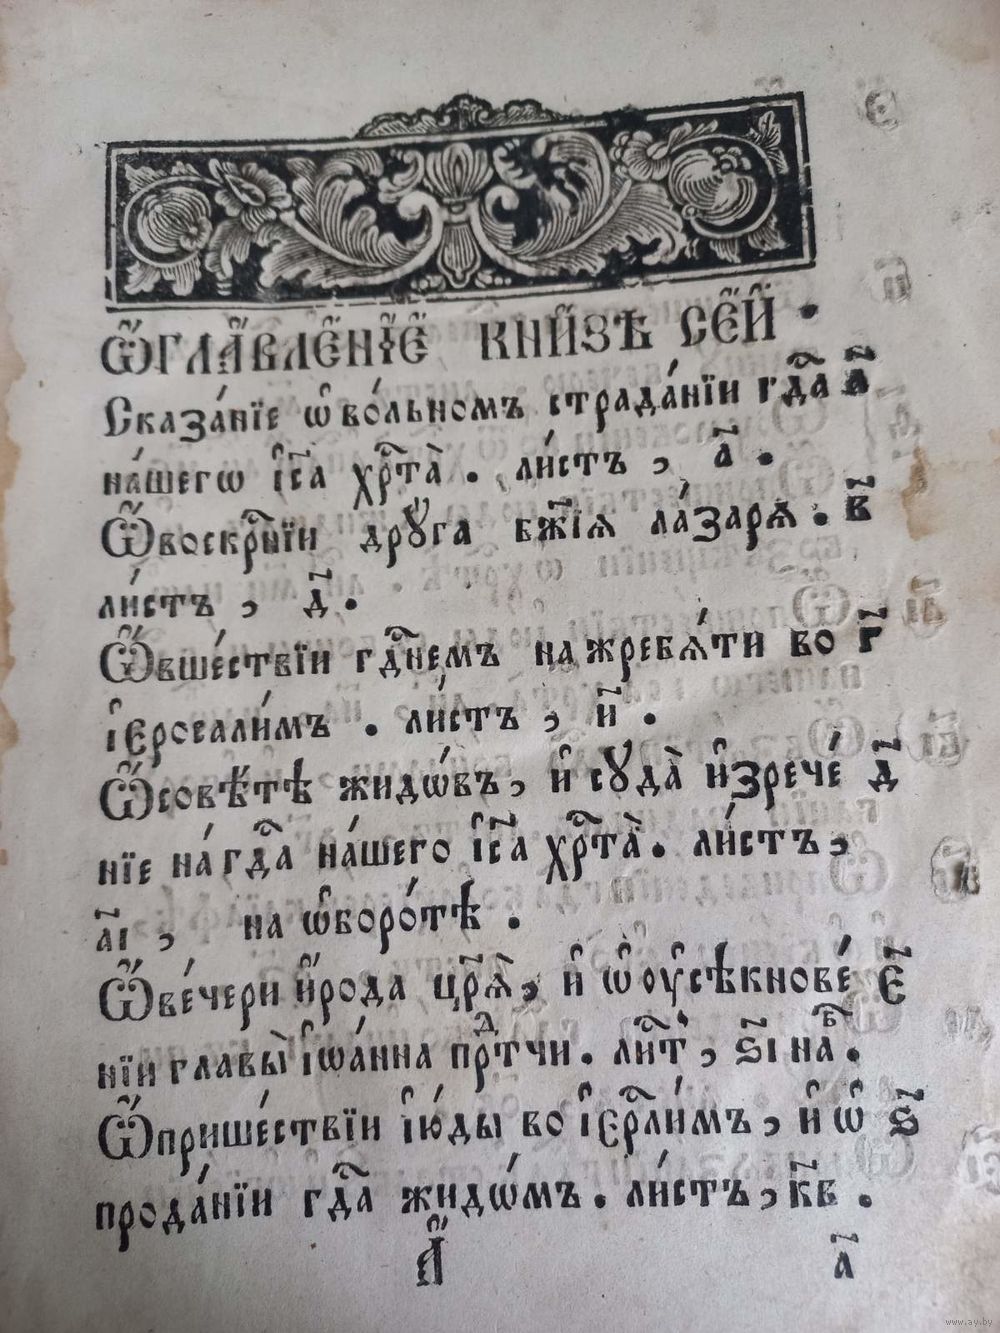 Ѡ҆гла́вле́нїе кни́зѣ се́й.
Сказа́нїе ѡ҆во́льномъ страда́нїи гдⷭ҇а а҃
на́шегѡ і҆с҃а хрⷭ҇та̀. ли́стъ, а҃.
Ѡ҆воскрⷭ҇нїи дрꙋ́га бж҃їѧ ла́зарѧ. в҃
ли́стъ, д҃.
Ѡ҆вше́ствїи гдⷭ҇немъ на жребѧ́ти во г҃
і҆еросали́мъ. ли́стъ, и҃.
Ѡ҆совѣ́тѣ жидѡ́въ, и҆ сꙋда̀ и҆зрече́ д҃
нїе на́ гдⷭ҇а на́шего і҆с҃а хрⷭ҇та̀. ли́стъ,
а҃і, на ѡ҆боро́тѣ.
Ѡ҆ве́чери и҆́рода цр҃ѧ̀, и҆ ѡ҆ ᲂу҆сѣкнове́ є҃
нїи главы̀ і҆ѡа́нна прⷣтчи. лиⷭ҇т, ѕ҃і наⷪ҇б.
Ѡ҆прише́ствїи і҆ю́ды во і҆ерⷭ҇ли́мъ, и҆ ѡ҆ ѕ҃
прода́нїи гдⷭ҇а жидѡ́мъ. ли́стъ, к҃в.
а҃
www.ay.by